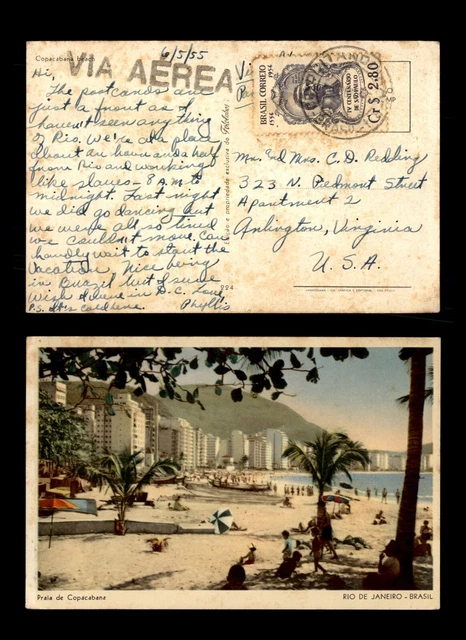 Copacabana beach
6/5/55
VIA AEREA
Hi,
The postcards are
just a front as I
haven't seen anything
of Rio. We're at a place
about an hour and a half
from Rio and working
like slaves - 8 A.M. to
midnight. Last night
we did go dancing but
we were all so tired
we couldn't move. Can
hardly wait to start the
vacation. Nice being
in Brazil but I sure
wish I were in D.C. Love,
P.S. It's cold here. Phyllis
224
e propriedade exclusiva da
BRASIL CORREIO
1554 1954
IV CENTENÁRIO
DE SÃO PAULO
CR$ 2,80
Mr. and Mrs. C. D. Redling
323 N. Piedmont Street
Apartment 2
Arlington, Virginia
U. S. A.
Praia de Copacabana
RIO DE JANEIRO - BRASIL